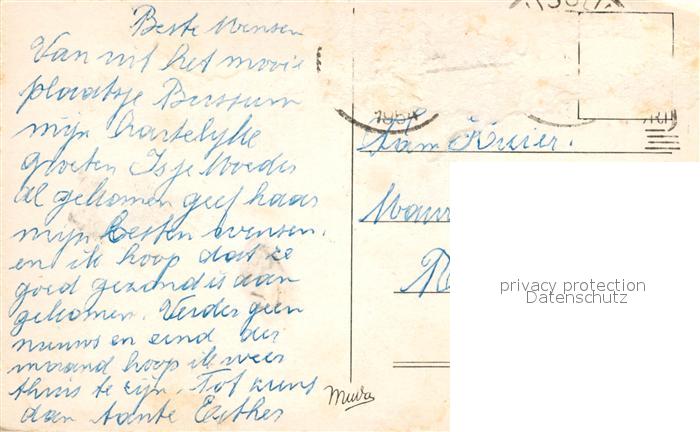 Beste Mensen
Van uit het mooie
plaatsje Bussum
mijn hartelijke
groeten Is je Moeder
al gekomen geef haar
mijn besten wensen.
en ik hoop dat ze
goed gezond is aan
gekomen. Verder geen
nieuws en eind der
maand hoop ik weer
thuis te zijn. Tot ziens
dan tante Esther
1954
Fam Kruier.
privacy protection
Datenschutz